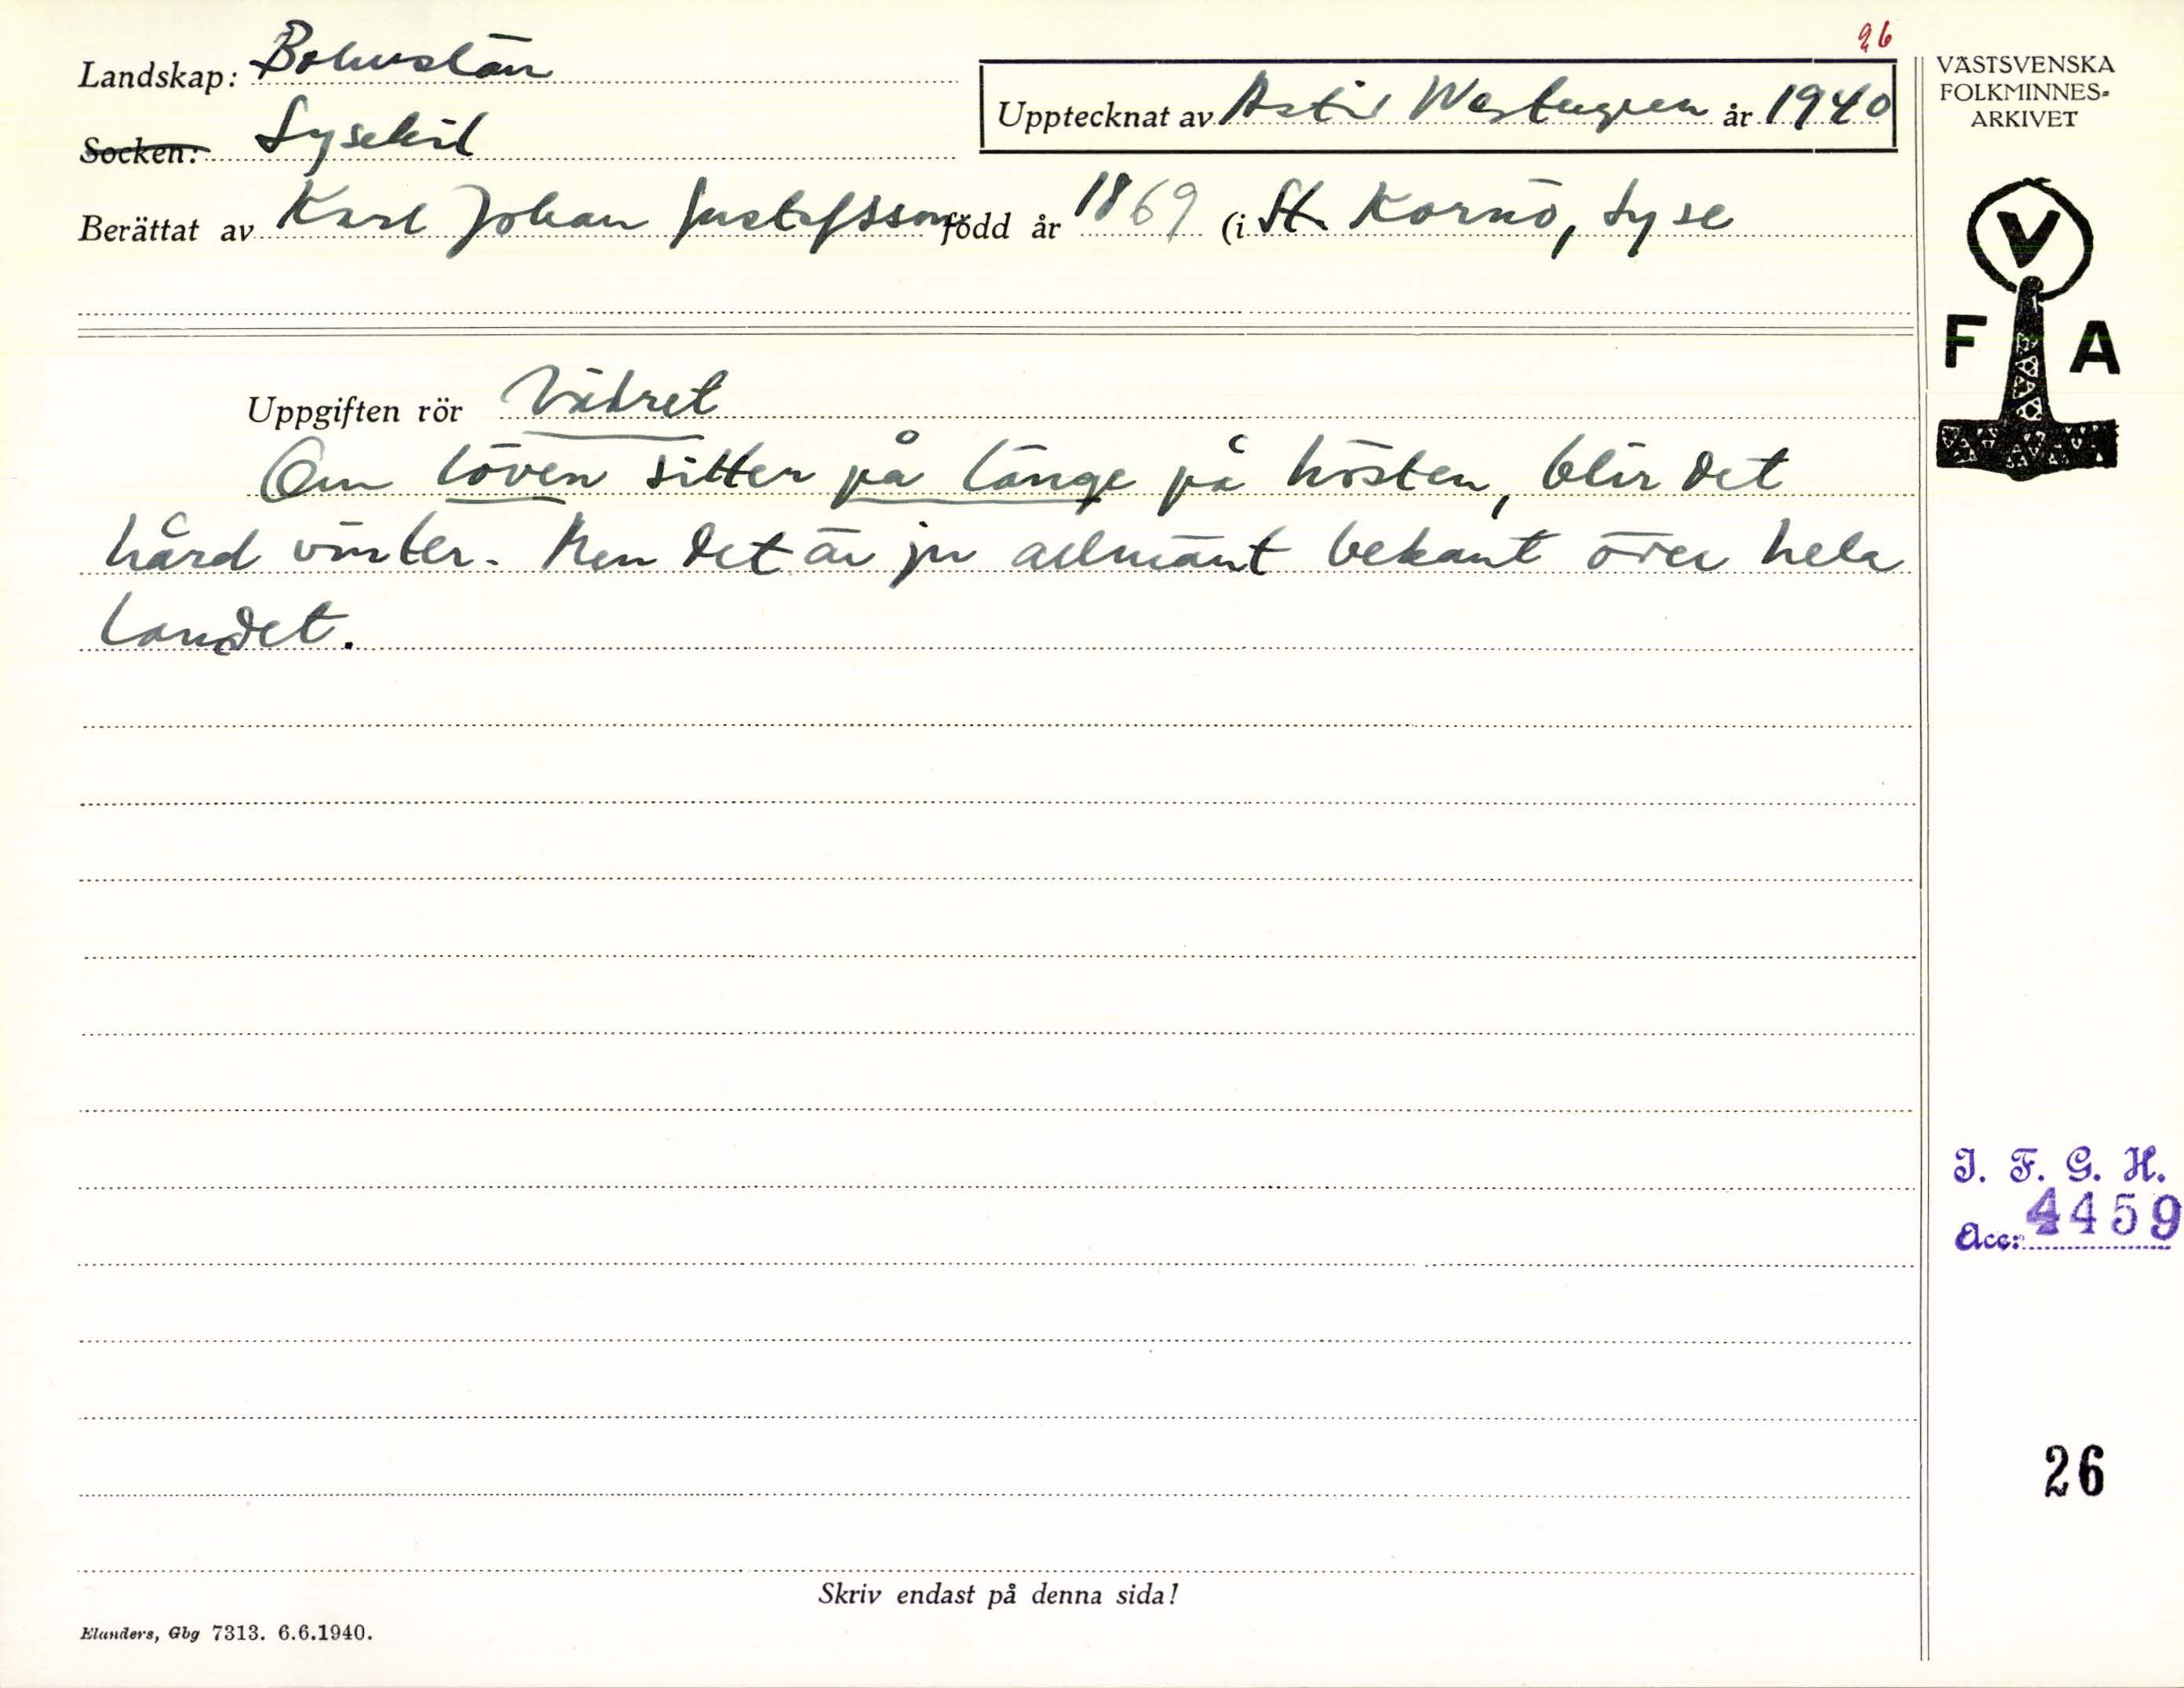 26
Landskap: Bohuslän
Upptecknat av Astrid år 1940
Socken: Lysekil
Berättat av Karl Johan Gustafsson född år 1869 (i St. Kornö, Lyse
VÄSTSVENSKA
FOLKMINNES-
ARKIVET
V
F A
Uppgiften rör Vädret
Om löven sitter på länge på hösten, blir det
hård vinter. Men det är ju allmänt bekant över hela
landet.
I. F. G. H.
Acc: 4459
26
Skriv endast på denna sida!
Elanders, Gbg 7313. 6.6.1940.